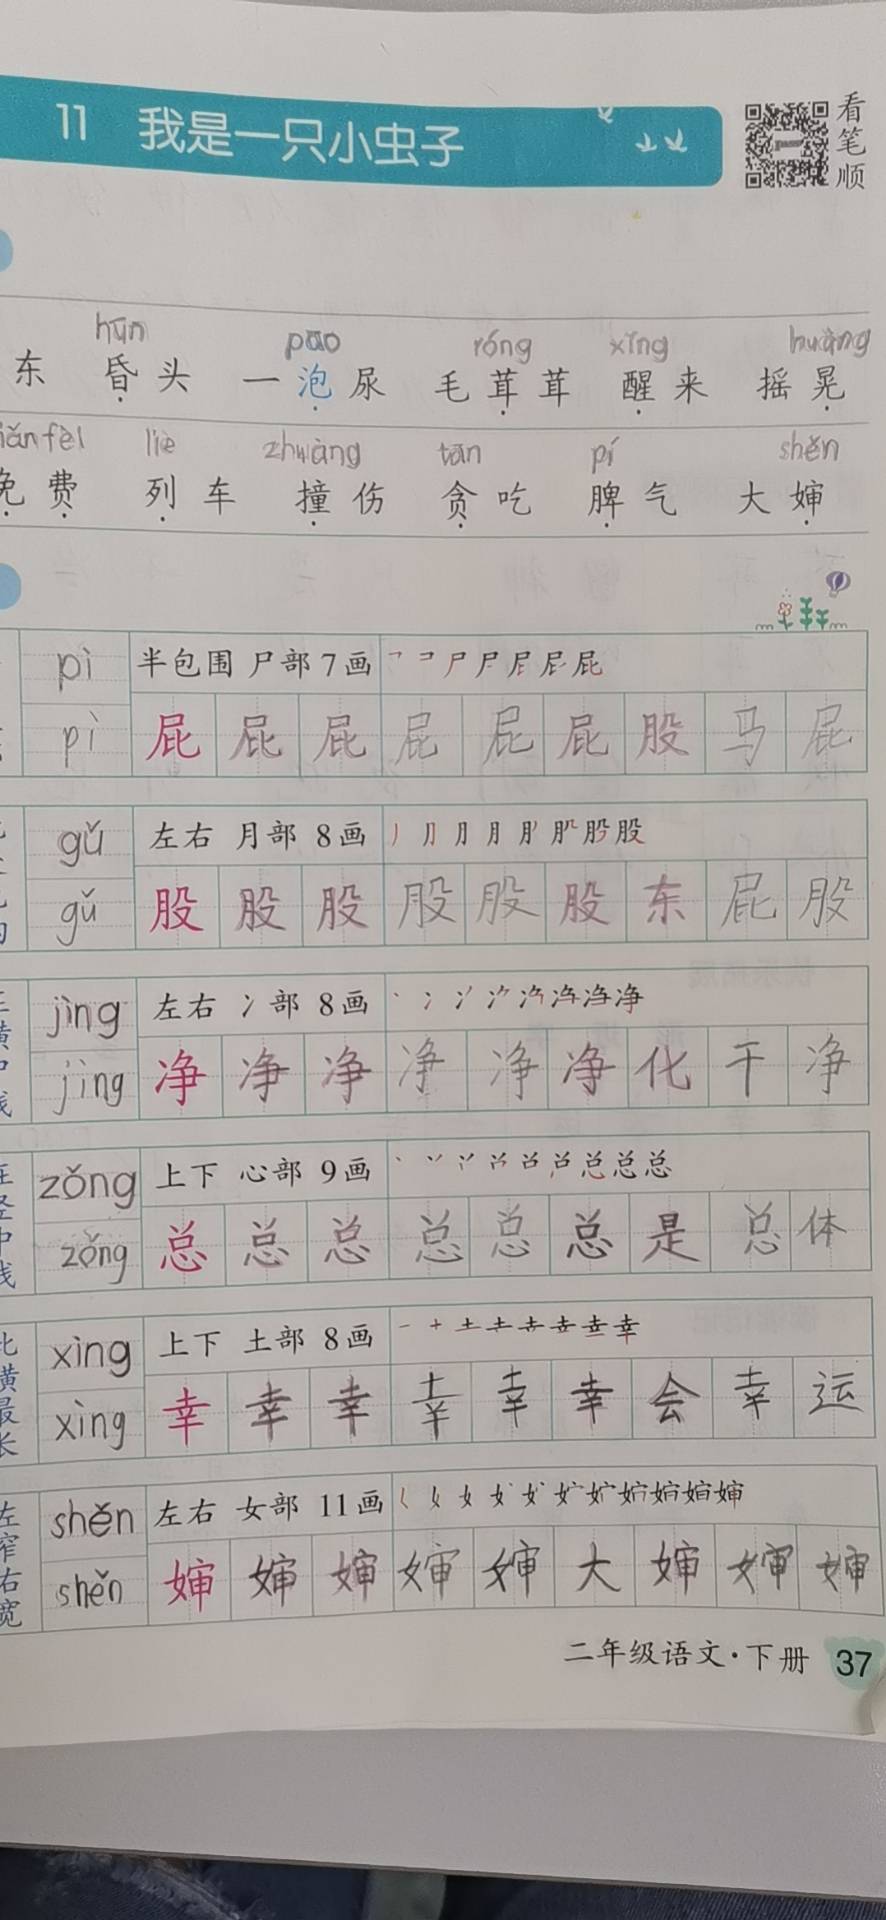 11 我是一只小虫子
看笔顺
hūn pāo róng xǐng huàng
东 昏头 一泡尿 毛茸茸 醒来 摇晃
iǎn fèi liè zhuàng tān pí shěn
免费 列车 撞伤 贪吃 脾气 大婶
pì 半包围 尸部 7画 尸 尸 屁 屁
pì 屁 屁 屁 屁 屁 屁 股 马 屁
gǔ 左右 月部 8画 丿 刀 月 月 股 股
gǔ 股 股 股 股 股 股 东 屁 股
jìng 左右 冫部 8画 丶 冫 净 净
jìng 净 净 净 净 净 净 化 干 净
zǒng 上下 心部 9画 丶 丷 总 总 总
zǒng 总 总 总 总 总 总 是 总 体
xìng 上下 土部 8画 一 十 土 幸
xìng 幸 幸 幸 幸 幸 幸 会 幸 运
比横最长
shěn 左右 女部 11画 女 女 婶
shěn 婶 婶 婶 婶 婶 大 婶 婶 婶
左窄右宽
二年级语文·下册 37